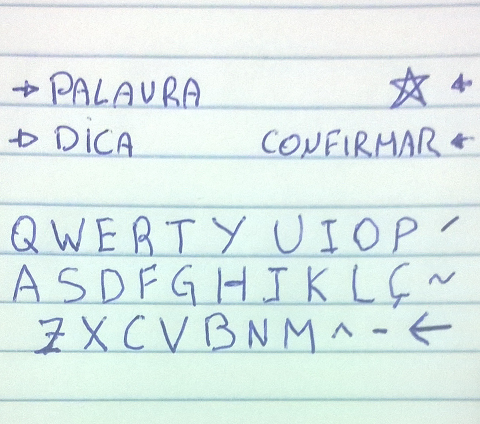 → PALAVRA ☆ ←
→ DICA CONFIRMAR ←
Q W E R T Y U I O P ´
A S D F G H J K L Ç ~
Z X C V B N M ^ - ←